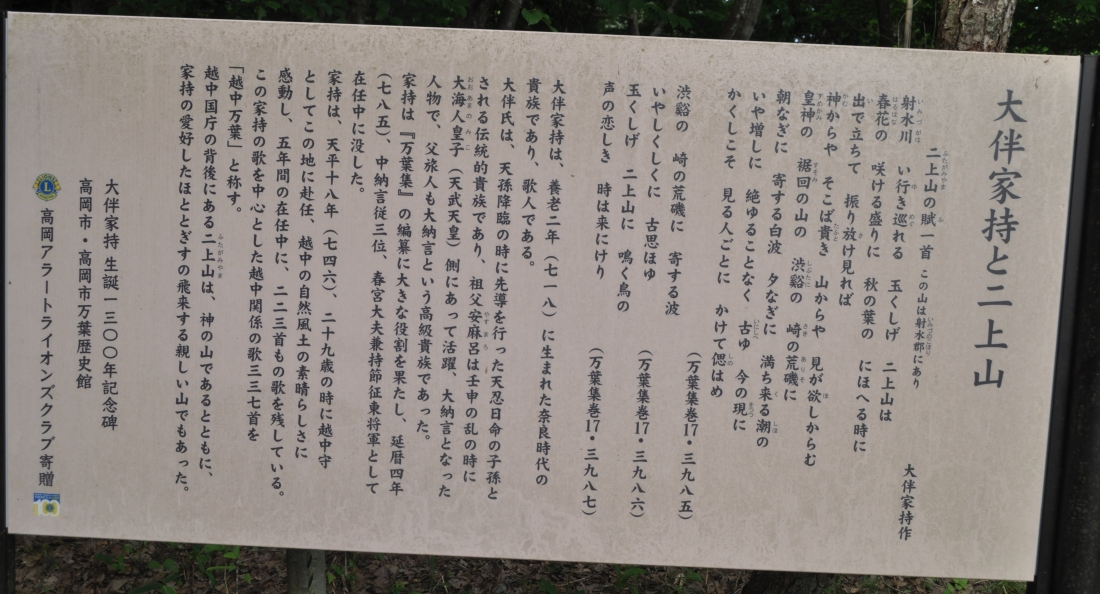 大伴家持と二上山
二上山の賦一首 この山は射水郡にあり
大伴家持作
射水川 い行き巡れる 玉くしげ 二上山は
春花の 咲ける盛りに 秋の葉の にほへる時に
出で立ちて 振り放け見れば
神からや そこば貴き 山からや 見が欲しからむ
皇神の 裾回の山の 渋谿の 崎の荒磯に
朝なぎに 寄する白波 夕なぎに 満ち来る潮の
いや増しに 絶ゆることなく 古ゆ 今の現に
かくしこそ 見る人ごとに かけて偲はめ
(万葉集巻17・三九八五)
渋谿の 崎の荒磯に 寄する波
いやしくしくに 古思ほゆ
(万葉集巻17・三九八六)
玉くしげ 二上山に 鳴く鳥の
声の恋しき 時は来にけり
(万葉集巻17・三九八七)
大伴家持は、養老二年(七一八)に生まれた奈良時代の
貴族であり、歌人である。
大伴氏は、天孫降臨の時に先導を行った天忍日命の子孫と
される伝統的貴族であり、祖父安麻呂は壬申の乱の時に
大海人皇子(天武天皇)側にあって活躍、大納言となった
人物で、父旅人も大納言という高級貴族であった。
家持は『万葉集』の編纂に大きな役割を果たし、延暦四年
(七八五)、中納言従三位、春宮大夫兼持節征東将軍として
在任中に没した。
家持は、天平十八年(七四六)、二十九歳の時に越中守
としてこの地に赴任、越中の自然風土の素晴らしさに
感動し、五年間の在任中に、二二三首もの歌を残している。
この家持の歌を中心とした越中関係の歌三三七首を
「越中万葉」と称す。
越中国庁の背後にある二上山は、神の山であるとともに、
家持の愛好したほととぎすの飛来する親しい山でもあった。
大伴家持 生誕一三〇〇年記念碑
高岡市・高岡市万葉歴史館
高岡アラートライオンズクラブ寄贈